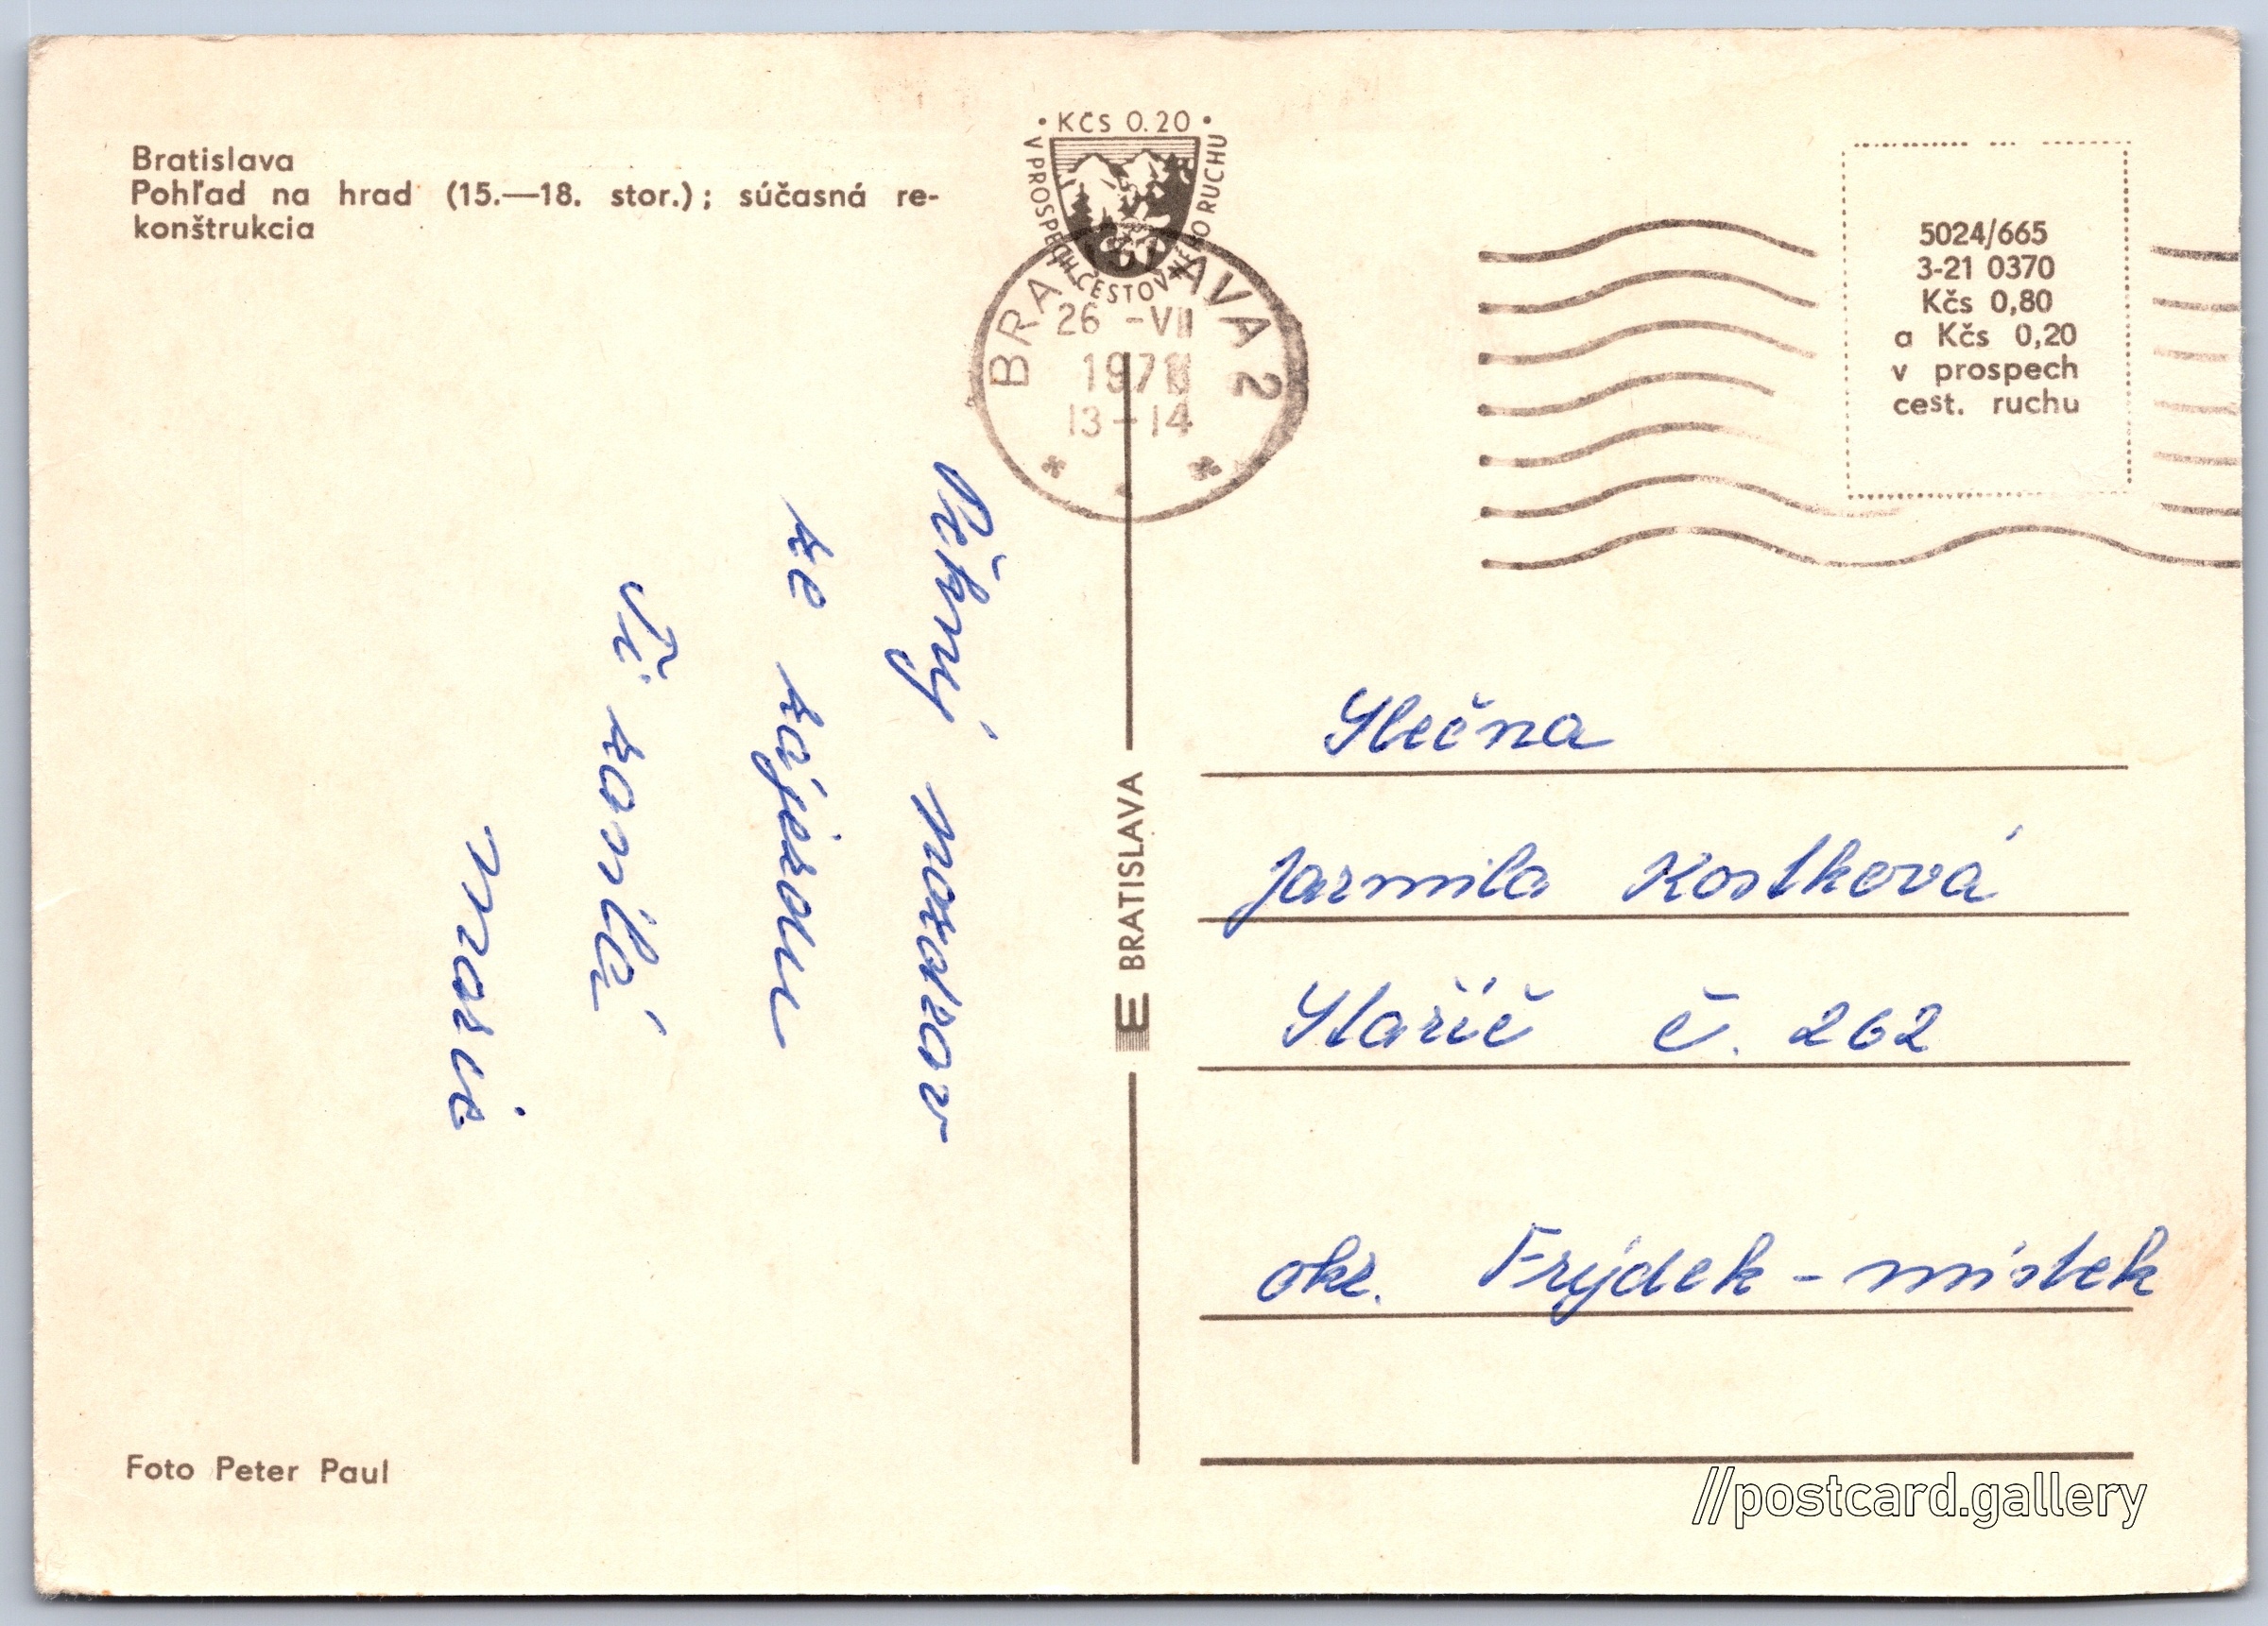 Bratislava
Pohľad na hrad (15.—18. stor.); súčasná re-
konštrukcia
• KČS 0.20 •
V PROSPECH CESTOVNÉHO RUCHU
BRATISLAVA 2
26 -VII
1978
13-14
5024/665
3-21 0370
Kčs 0,80
a Kčs 0,20
v prospech
cest. ruchu
Pěkný pozdrav
ze zájezdu
Ti zasílá
BRATISLAVA
Slečna
Jarmila Kostková
Staříč č. 262
okr. Frýdek - místek
Foto Peter Paul
//postcard.gallery